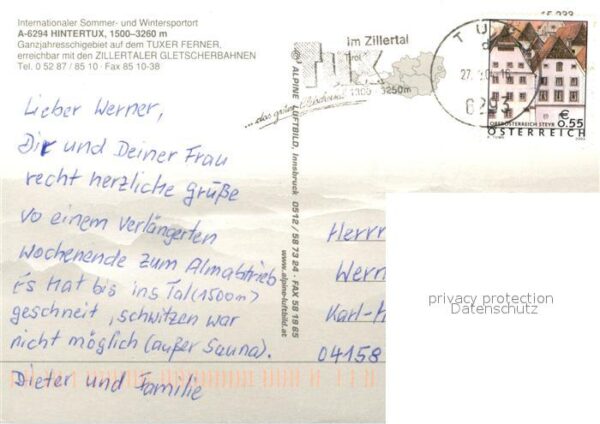 Internationaler Sommer- und Wintersportort
A-6294 HINTERTUX, 1500–3260 m
Ganzjahresschigebiet auf dem TUXER FERNER,
erreichbar mit den ZILLERTALER GLETSCHERBAHNEN
Tel. 0 52 87 / 85 10 · Fax 85 10-38
Lieber Werner,
Dir und Deiner Frau
recht herzliche Grüße
vo einem verlängerten
Wochenende zum Almabtrieb
Es hat bis ins Tal (1500m)
geschneit, schwitzen war
nicht möglich (außer Sauna).
Dieter und Familie
© ALPINE LUFTBILD, Innsbruck 0512 / 58 73 24 · FAX 58 19 65
www.alpine-luftbild.at
im Zillertal
Tux
Tirol
1300 - 3250m
TUX
6293
€ 0.55
OBERÖSTERREICH STEYR
ÖSTERREICH
Herrn
Wern
Karl-
04158
privacy protection
Datenschutz